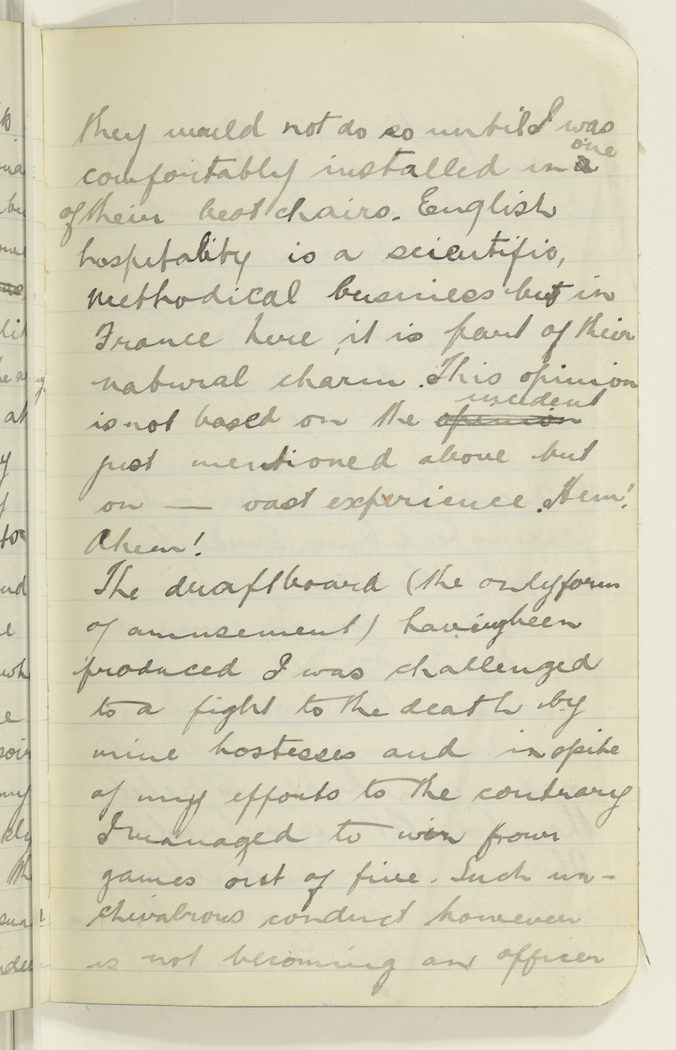 they would not do so until I was
comfortably installed in a one
of their best chairs. English
hospitality is a scientific,
methodical business but in
France here, it is part of their
natural charm. This opinion
is not based on the opinion incident
just mentioned above but
on — vast experience. Hem!
Ahem!
The draftboard (the only form
of amusement) having been
produced I was challenged
to a fight to the death by
mine hostesses and in spite
of my efforts to the contrary
I managed to win four
games out of five. Such un-
chivalrous conduct however
is not becoming an officer